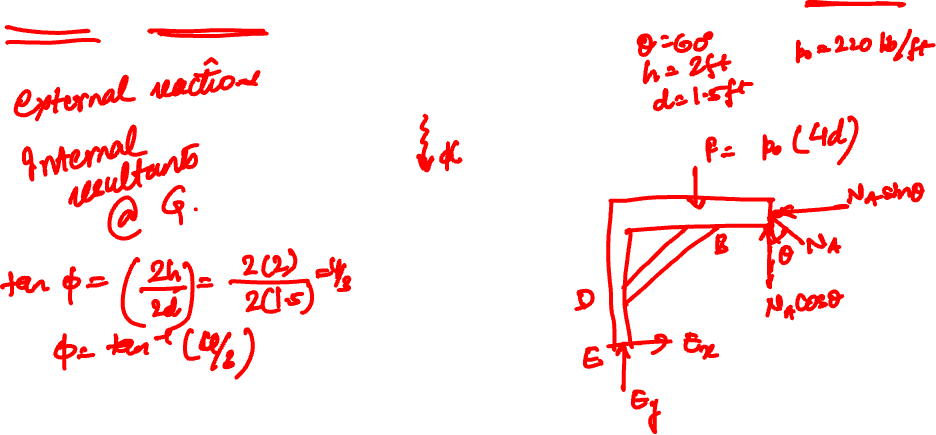 External reactions
Internal
resultants
@ G.
tan φ = (2h/2d) = 2(2)/2(1.5) = 4/3
φ = tan⁻¹ (4/3)
θ = 60°
h = 2ft
d = 1.5ft
p₀ = 220 lb/ft
F = p₀ (4d)
N_A sinθ
B
θ
N_A
D
N_A cosθ
E
E_x
E_y